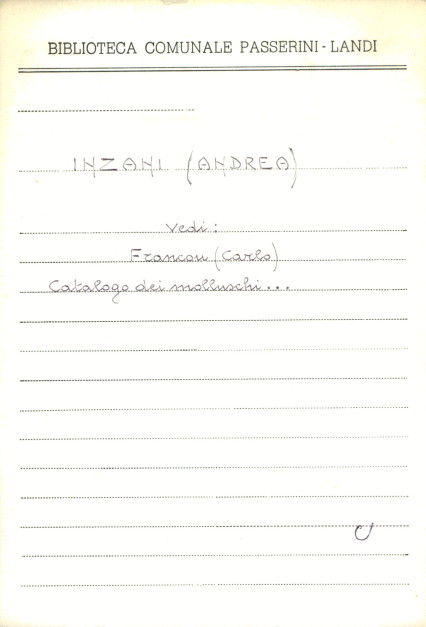 BIBLIOTECA COMUNALE PASSERINI - LANDI
INZANI (ANDREA)
Vedi:
Francou (Carlo)
Catalogo dei molluschi...